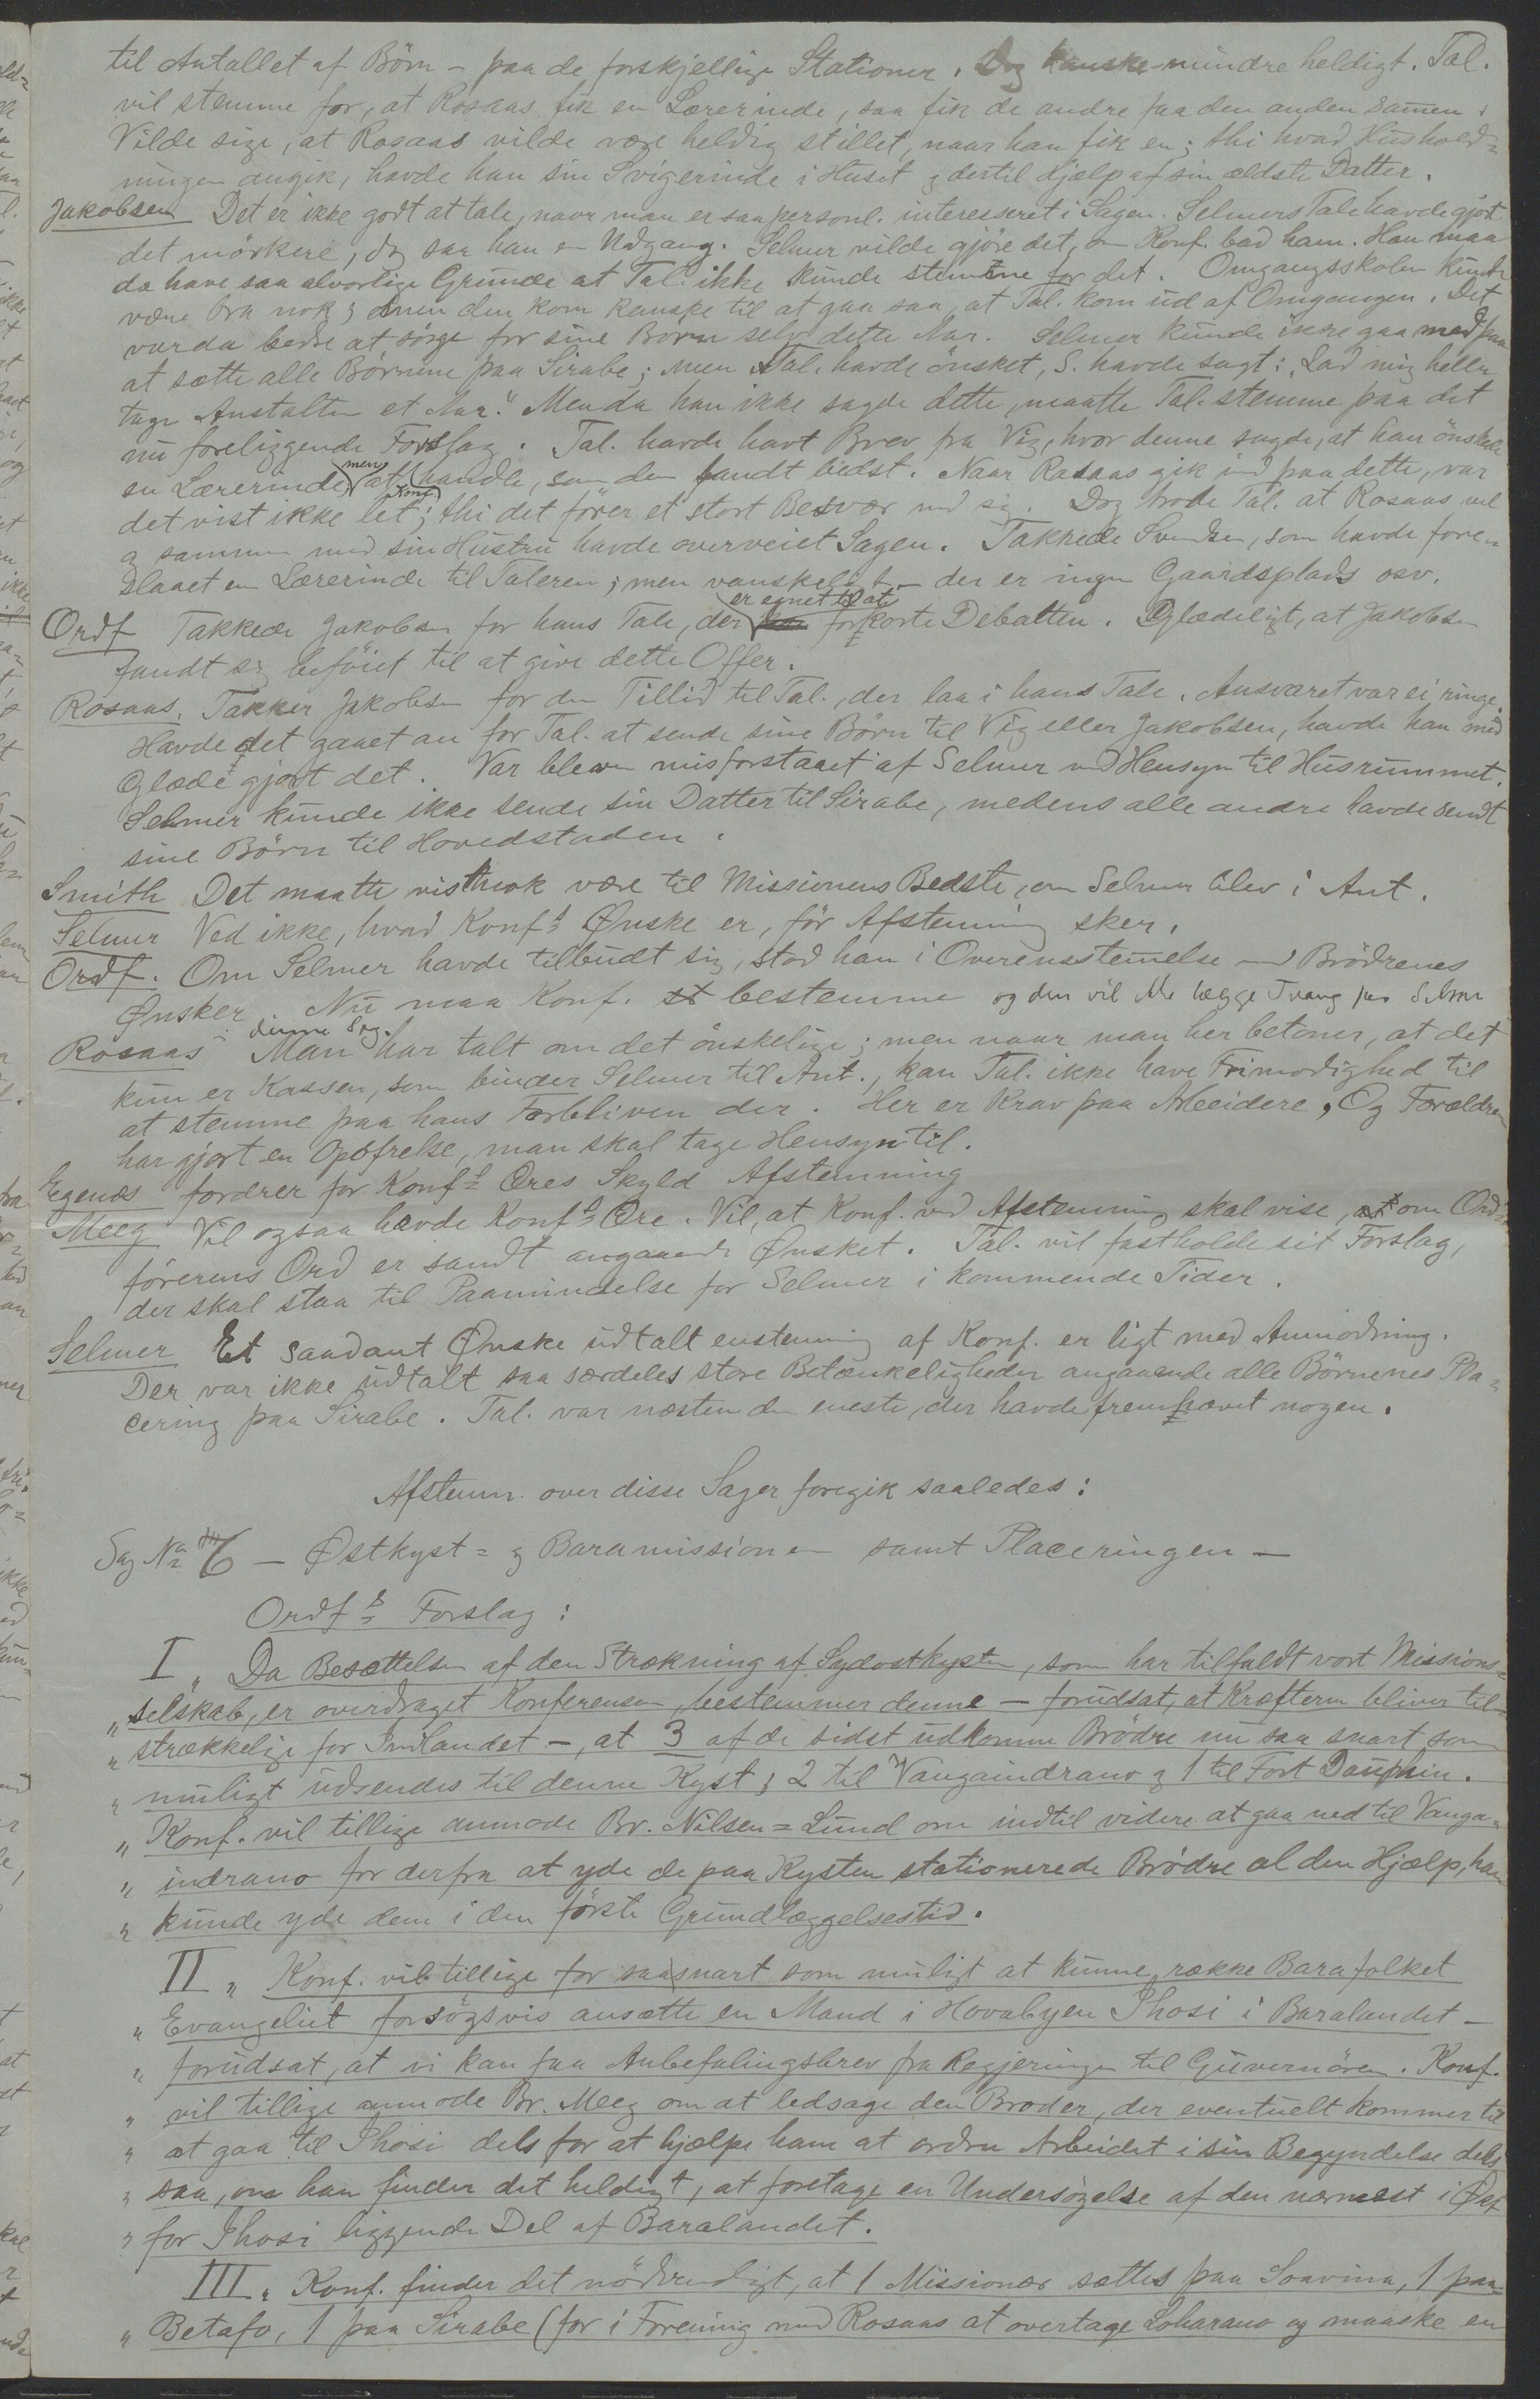 til Antallet af Börn – paa de forskjellige Stationer. Dog kanske mindre heldigt. Tal.
vil stemme for, at Rosaas fik en Lærerinde, saa fik de andre faa den anden sammen.
Vilde sige, at Rosaas vilde være heldig stillet, naar han fik en; thi hvad Hushold=
ningen angik, havde han sin Svigerinde i Huset og dertil Hjælp af sin ældste Datter.
Jakobsen Det er ikke godt at tale, naar man er saa personl. interesseret i Sagen. Selmers Tale havde gjort
det mörkere, dog saa han en Udgang. Selmer vilde gjöre det, om Konf. bad ham. Han maa
da have saa alvorlige Grunde at Tal. ikke kunde stemme for det. Omgangsskolen kunde
være bra nok; men den kom kanske til at gaa saa, at Tal. kom ud af Omgangen. Det
var da bedre at sörge for sine Börn selv dette Aar. Selmer kunde ikke gaa med paa
at sætte alle Börnene paa Sirabe; men Tal. havde önsket, S. havde sagt: "Lad mig heller
tage Anstalten et Aar." Men da han ikke sagde dette, maatte Tal. stemme paa det
nu foreliggende Forslag. Tal. havde havt Brev fra Vig, hvor denne sagde, at han önskede
en Lærerinde, men at Konf. handle, som den fandt bedst. Naar Rosaas gik ind paa dette, var
det vist ikke let; thi det förer et stort Besvær med sig. Dog trode Tal. at Rosaas vel
og sammen med sin Hustru havde overveiet Sagen. Takkede Svendsen, som havde fore=
slaaet en Lærerinde til Taleren; men vanskeligt – der er ingen Gaardsplads osv.
Ordf Takkede Jakobsen for hans Tale, der er egnet til at forkorte Debatten. Glædeligt, at Jakobsen
fandt sig beföiet til at give dette Offer.
Rosaas. Takker Jakobsen for den Tillid til Tal., der laa i hans Tale. Ansvaret var ei ringe.
Havde det gaaet an for Tal. at sende sine Börn til Vig eller Jakobsen, havde han med
Glæde gjort det. Var bleven misforstaaet af Selmer med Hensyn til Husrummet.
Selmer kunde ikke sende sin Datter til Sirabe, medens alle andre havde sendt
sine Börn til Hovedstaden.
Smith Det maatte vistnok være til Missionens Bedste, om Selmer blev i Ant.
Selmer Ved ikke, hvad Konf.s Ønske er, för Afstemning sker.
Ordf. Om Selmer havde tilbudt sig, stod han i Overensstemmelse med Brödrenes
Ønsker. Nu maa Konf. bestemme denne Sag. og den vil ikke lægge Tvang paa Selmer
Rosaas Man har talt om det önskelige; men naar man her betoner, at det
kun er Kassen, som binder Selmer til Ant., kan Tal. ikke have Frimodighed til
at stemme paa hans Forbliven der. Her er Krav paa Arbeidere. Og Forældrene
har gjort en Opofrelse, man skal tage Hensyn til.
Egenæs fordrer for Konf.s Æres Skyld Afstemning
Meeg Vil ogsaa hævde Konf.s Ære. Vil, at Konf. ved Afstemning skal vise, om Ord=
förerens Ord er sandt angaaende Ønsket. Tal. vil fastholde sit Forslag,
der skal staa til Paamindelse for Selmer i kommende Tider.
Selmer Et saadant Ønske udtalt enstemmig af Konf. er ligt med Anmodning.
Der var ikke udtalt saa særdeles store Betænkeligheder angaaende alle Börnenes Pla=
cering paa Sirabe. Tal. var næsten den eneste, der havde fremhævet nogen.
Afstemn. over disse Sager foregik saaledes:
Sag No 6 – Østkyst= og Baramissionen samt Placeringen –
Ordf.s Forslag:
I „ Da Besættelsen af den Strækning af Sydostkysten, som har tilfaldt vort Missions=
„ selskab, er overdraget Konferensen, bestemmer denne – forudsat, at Kræfterne bliver til=
„ strækkelige for Indlandet –, at 3 af de sidst udkomne Brödre nu saa snart som
„ muligt udsendes til denne Kyst; 2 til Vangaindrano og 1 til Fort Dauphin.
„ Konf. vil tillige anmode Br. Nilsen=Lund om indtil videre at gaa ned til Vanga=
„ indrano for derfra at yde de paa Kysten stationerede Brödre al den Hjælp, han
„ kunde yde dem i den förste Grundlæggelsestid.
II „ Konf. vil tillige for saa snart som muligt at kunne række Barafolket
„ Evangeliet forsögsvis ansætte en Mand i Hovabyen Ihosi i Baralandet –
„ forudsat, at vi kan faa Anbefalingsbrev fra Regjeringen til Guvernören. Konf.
„ vil tillige anmode Br. Meeg om at ledsage den Broder, der eventuelt kommer til
„ at gaa til Ihosi dels for at hjælpe ham at ordne Arbeidet i sin Begyndelse dels
„ saa, om han finder det heldigt, at foretage en Undersögelse af den nærmest i Øst
„ for Ihosi liggende Del af Baralandet.
III „ Konf. finder det nödvendigt, at 1 Missionær sættes paa Soavina, 1 paa
„ Betafo, 1 paa Sirabe (for i Forening med Rosaas at overtage Loharano og maaske en